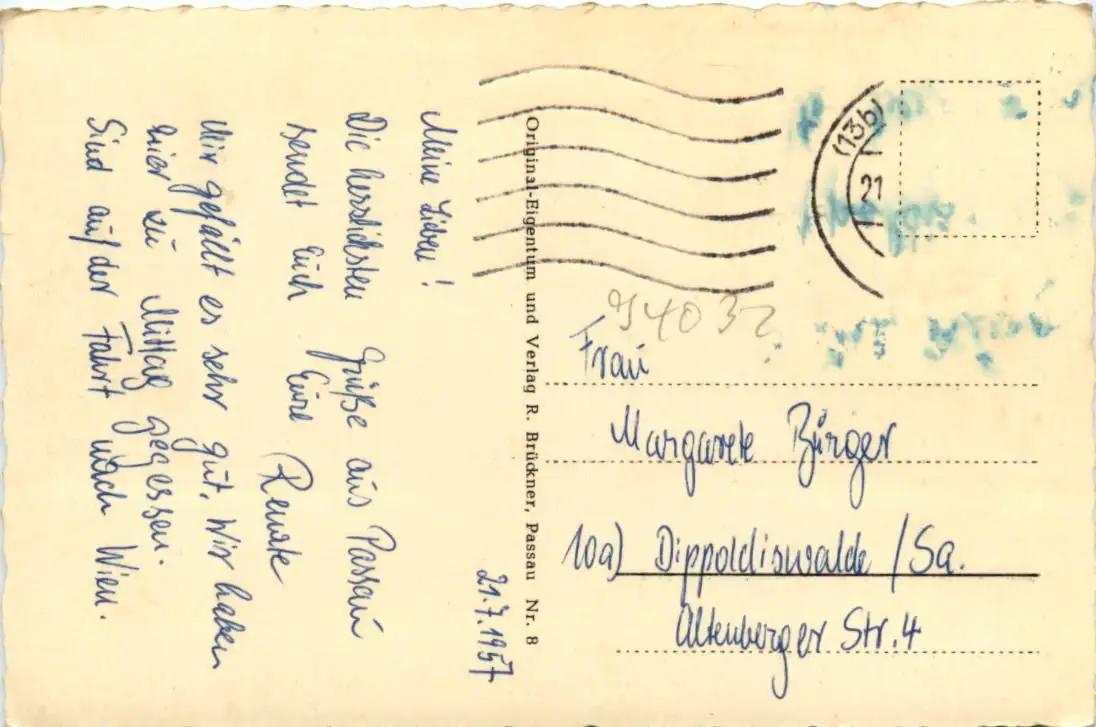 21.7.1957
Meine Lieben!
Die herzlichsten Grüße aus Passau
sendet Euch Eure Renate
Mir gefällt es sehr gut. Wir haben
hier zu Mittag gegessen.
Sind auf der Fahrt nach Wien.
Original-Eigentum und Verlag R. Brückner, Passau Nr. 8
(13b)
21
94032
Frau
Margarete Bürger
10a) Dippoldiswalde /Sa.
Altenberger Str. 4